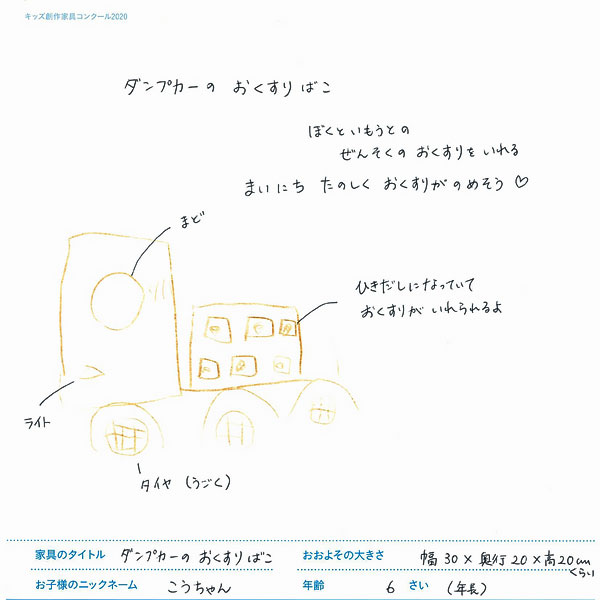 キッズ創作家具コンクール2020
ダンプカーの おくすりばこ
ぼくといもうとの
ぜんそくの おくすりをいれる
まいにち たのしく おくすりがのめそう♡
まど
ひきだしになっていて
おくすりが いれられるよ
ライト
タイヤ (うごく)
家具のタイトル ダンプカーの おくすりばこ おおよその大きさ 幅30×奥行20×高20cmくらい
お子様のニックネーム こうちゃん 年齢 6 さい (年長)